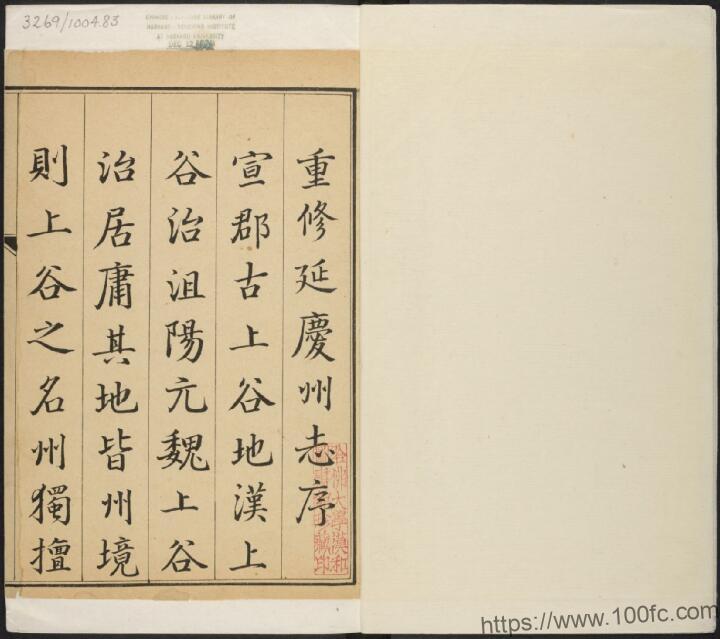 3269/1004.83
CHINESE-JAPANESE LIBRARY OF
HARVARD-YENCHING INSTITUTE
AT HARVARD UNIVERSITY
重修延慶州志序
宣郡古上谷地漢上
谷治沮陽元魏上谷
治居庸其地皆州境
則上谷之名州獨擅
哈佛大學漢和
圖書館珍藏印
https://www.100fc.com